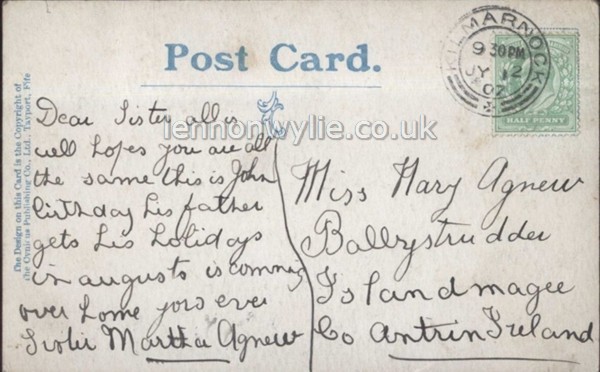 Post Card.
KILMARNOCK
9 30PM
JY 12
07
HALF PENNY
The Design on this Card is the Copyright of
The Cynicus Publishing Co., Ltd., Tayport, Fife
lennonwylie.co.uk
Dear Sister all is
well hopes you are all
the same this is John
birthday his father
gets his holidays
in augusts is comming
over home yors ever
Sister Martha Agnew
Miss Mary Agnew
Ballystrudder
Islandmagee
Co Antrin Ireland